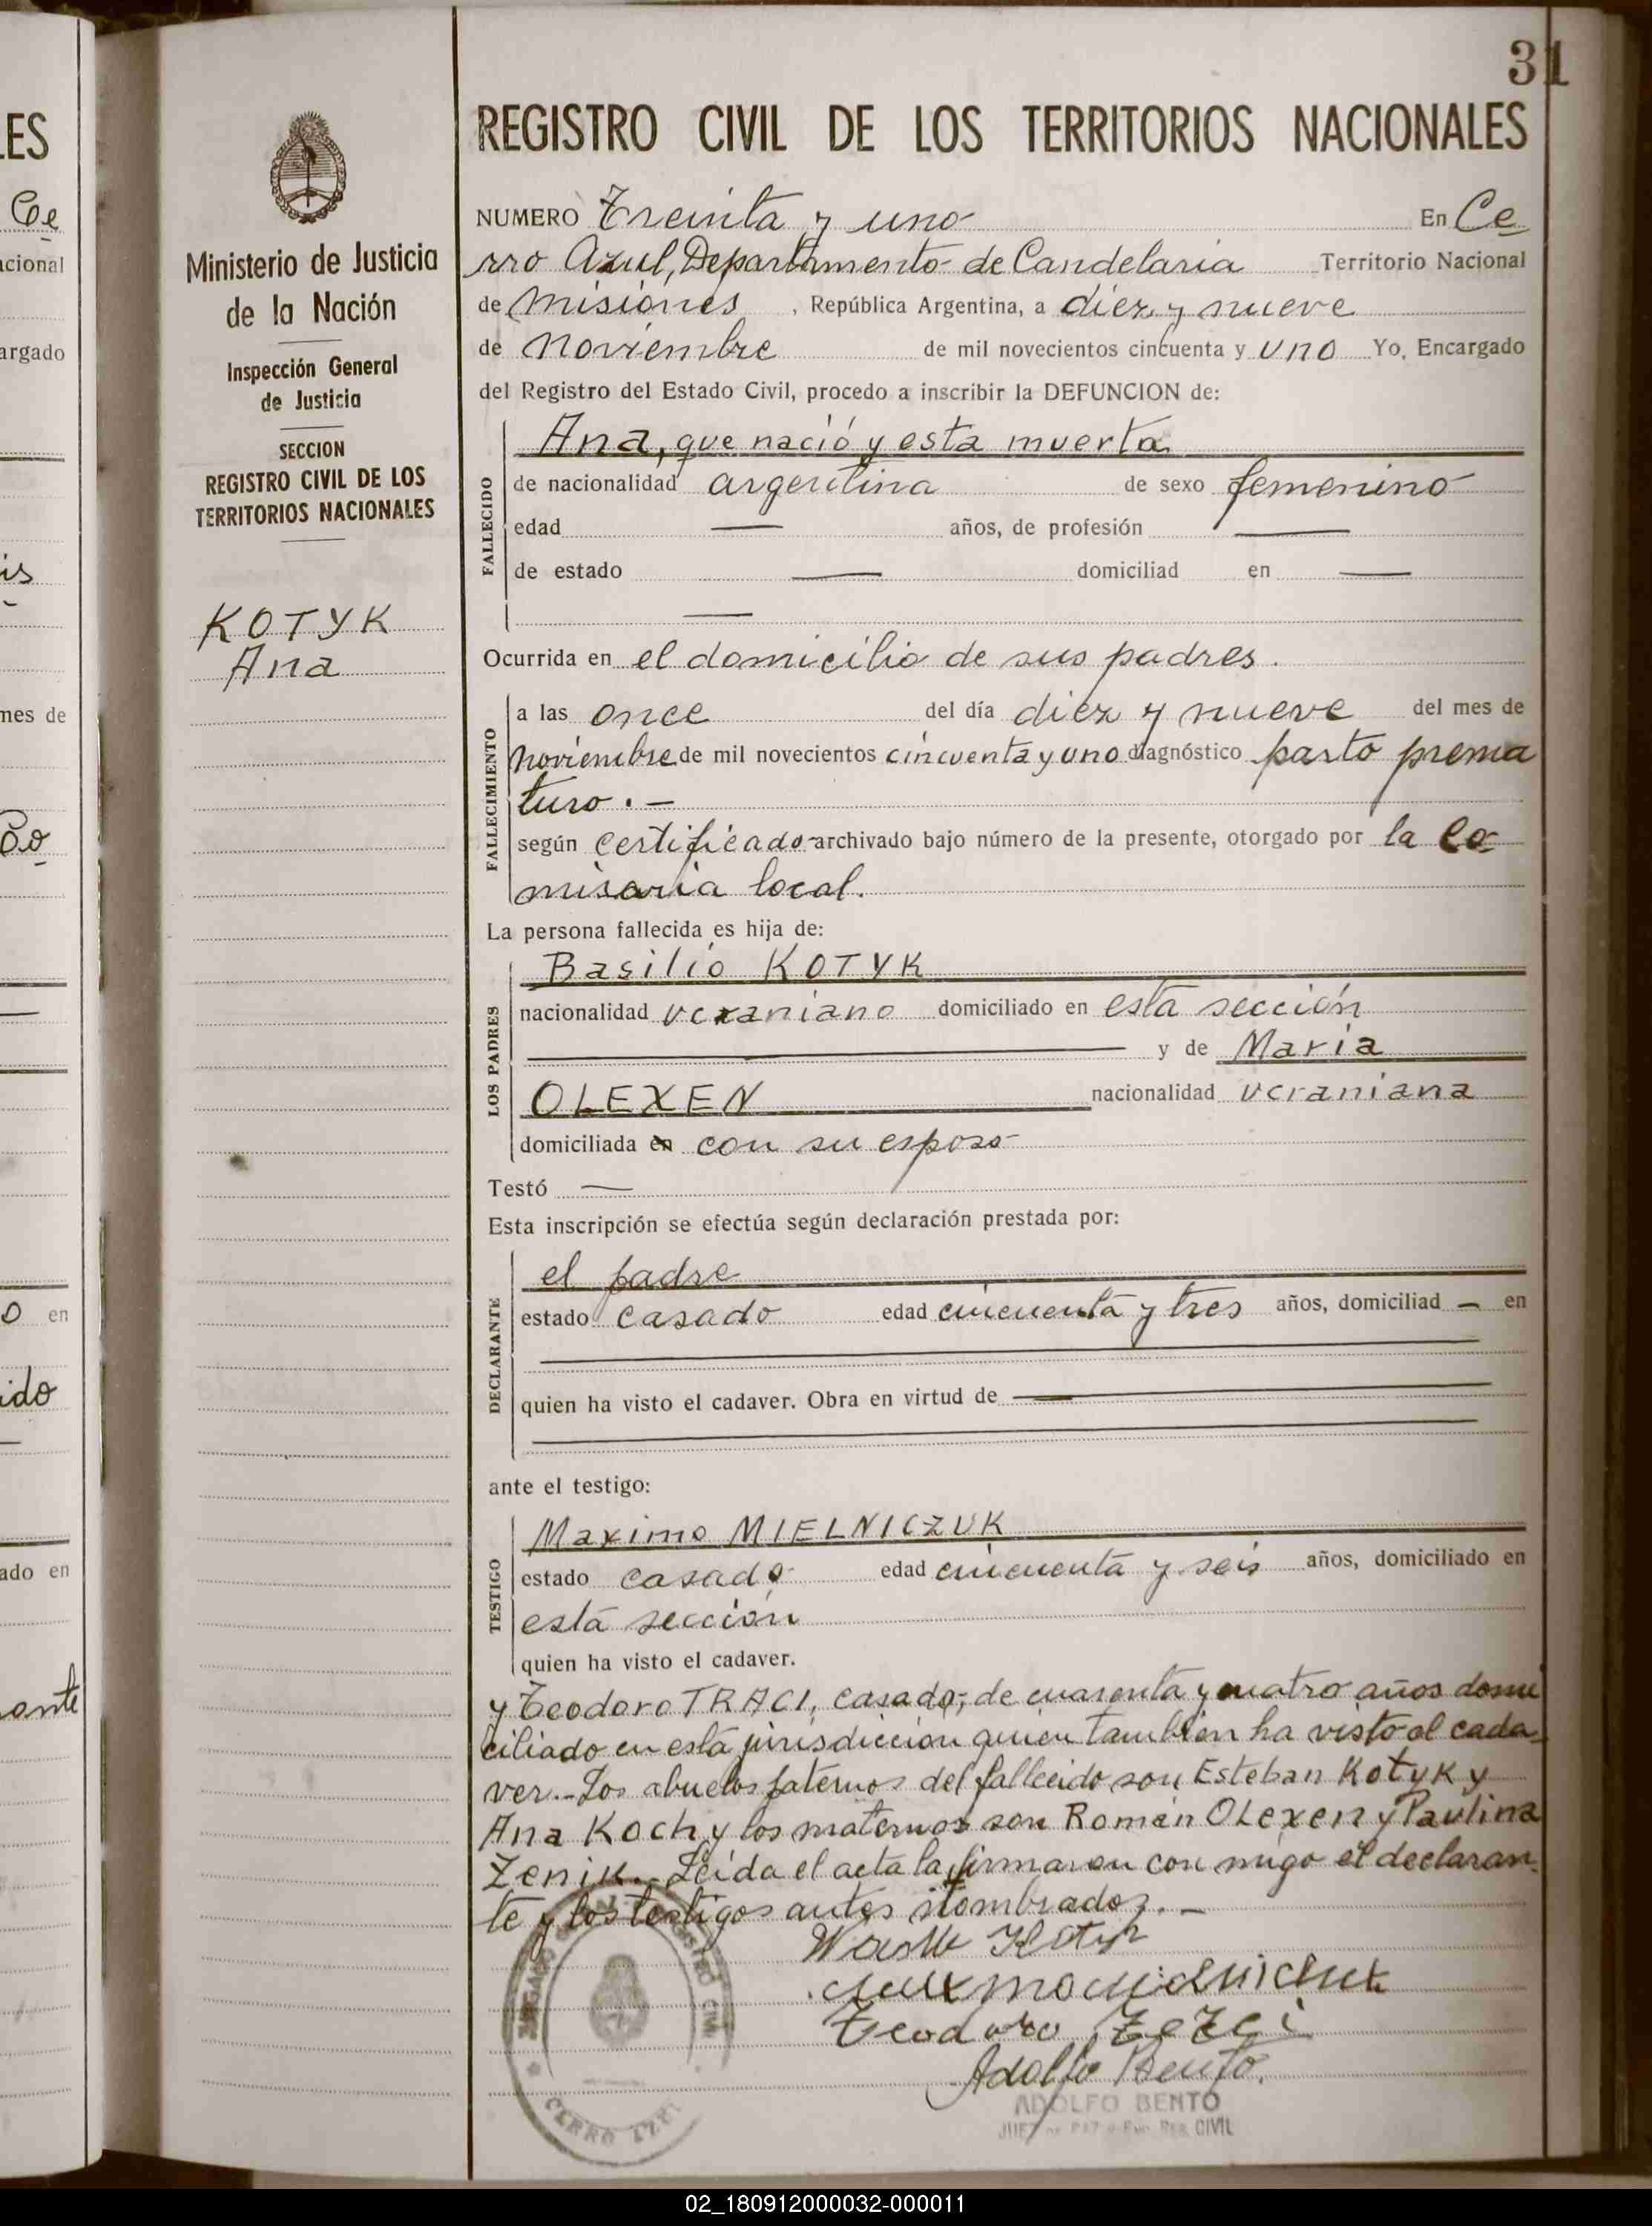 31
LES
Ce
acional
argado
is
mes de
o en
ido
ado en
ante
Ministerio de Justicia
de la Nación
Inspección General
de Justicia
SECCION
REGISTRO CIVIL DE LOS
TERRITORIOS NACIONALES
KOTYK
Ana
REGISTRO CIVIL DE LOS TERRITORIOS NACIONALES
NUMERO Treinta y uno En Ce
rro Azul, Departamento de Candelaria Territorio Nacional
de Misiones, República Argentina, a diez y nueve
de Noviembre de mil novecientos cincuenta y uno Yo, Encargado
del Registro del Estado Civil, procedo a inscribir la DEFUNCION de:
FALLECIDO
Ana, que nació y esta muerta
de nacionalidad argentina de sexo femenino
edad — años, de profesión —
de estado — domiciliad en —
—
Ocurrida en el domicilio de sus padres.
FALLECIMIENTO
a las once del día diez y nueve del mes de
noviembre de mil novecientos cincuenta y uno diagnóstico parto prema
turo. —
según certificado archivado bajo número de la presente, otorgado por la Co
misaria local.
La persona fallecida es hija de:
LOS PADRES
Basilio KOTYK
nacionalidad ucraniano domiciliado en esta sección
— y de Maria
OLEXEN nacionalidad ucraniana
domiciliada en con su esposo
Testó —
Esta inscripción se efectúa según declaración prestada por:
DECLARANTE
el padre
estado casado edad cincuenta y tres años, domiciliad — en
quien ha visto el cadaver. Obra en virtud de —
ante el testigo:
TESTIGO
Maximo MIELNICZUK
estado casado edad cincuenta y seis años, domiciliado en
esta sección
quien ha visto el cadaver.
y Teodoro TRACI, casado, de cuarenta y cuatro años domi
ciliado en esta jurisdicción quien tambien ha visto el cada-
ver.- Los abuelos paternos del fallecido son Esteban Kotyk y
Ana Koch y los maternos son Román OLexen y Paulina
Zenik.- Leída el acta la firmaron con migo el declaran-
te y los testigos antes nombrados. —
Teodoro
Adolfo Bento.
ADOLFO BENTO
JUEZ DE PAZ y Enc. Reg. CIVIL
CERRO AZUL
02_180912000032-000011